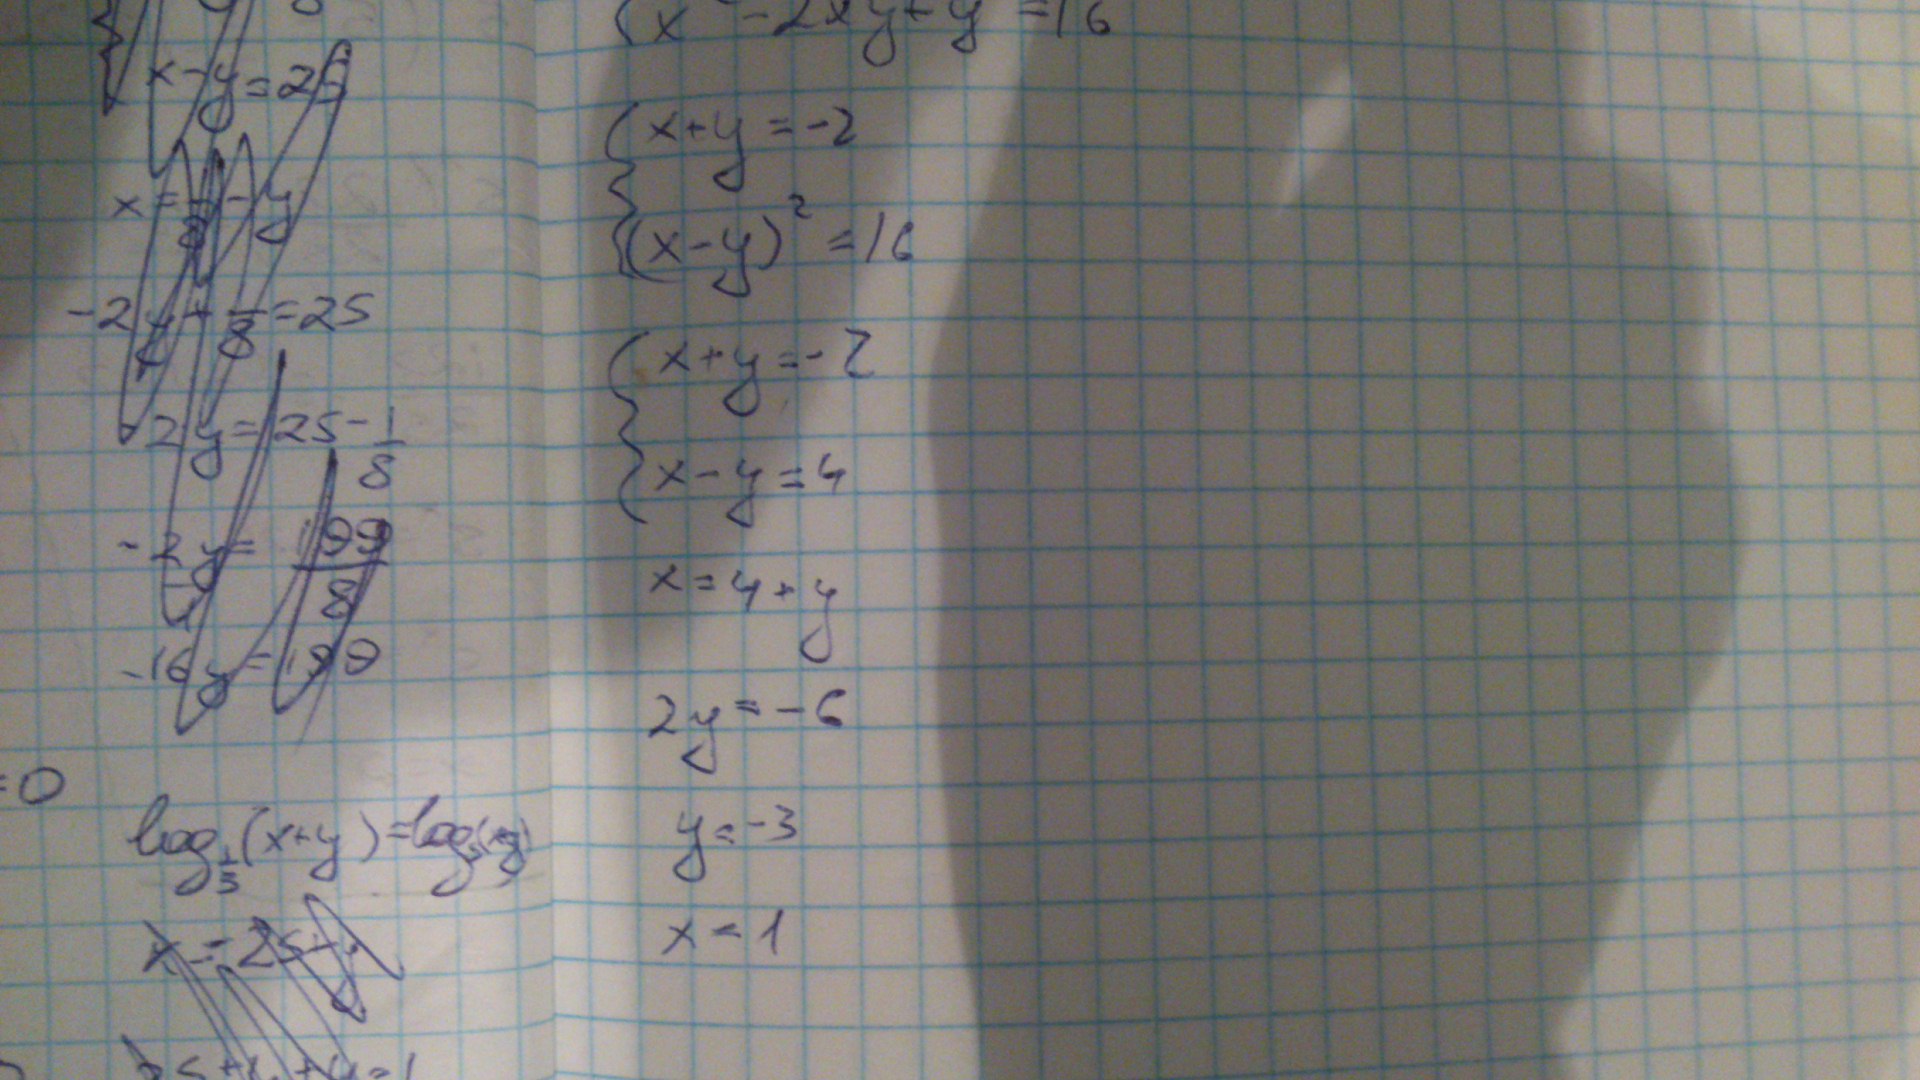 x-y=25
x=1/8-y
-2y+1/8=25
2y=25-1/8
-2y=199/8
-16y=199
=0
log_{1/3}(x+y)=log_3(xy)
x=25+y
{x²-2xy+y²=16
{x+y=-2
{(x-y)²=16
{x+y=-2
{x-y=4
x=4+y
2y=-6
y=-3
x=1